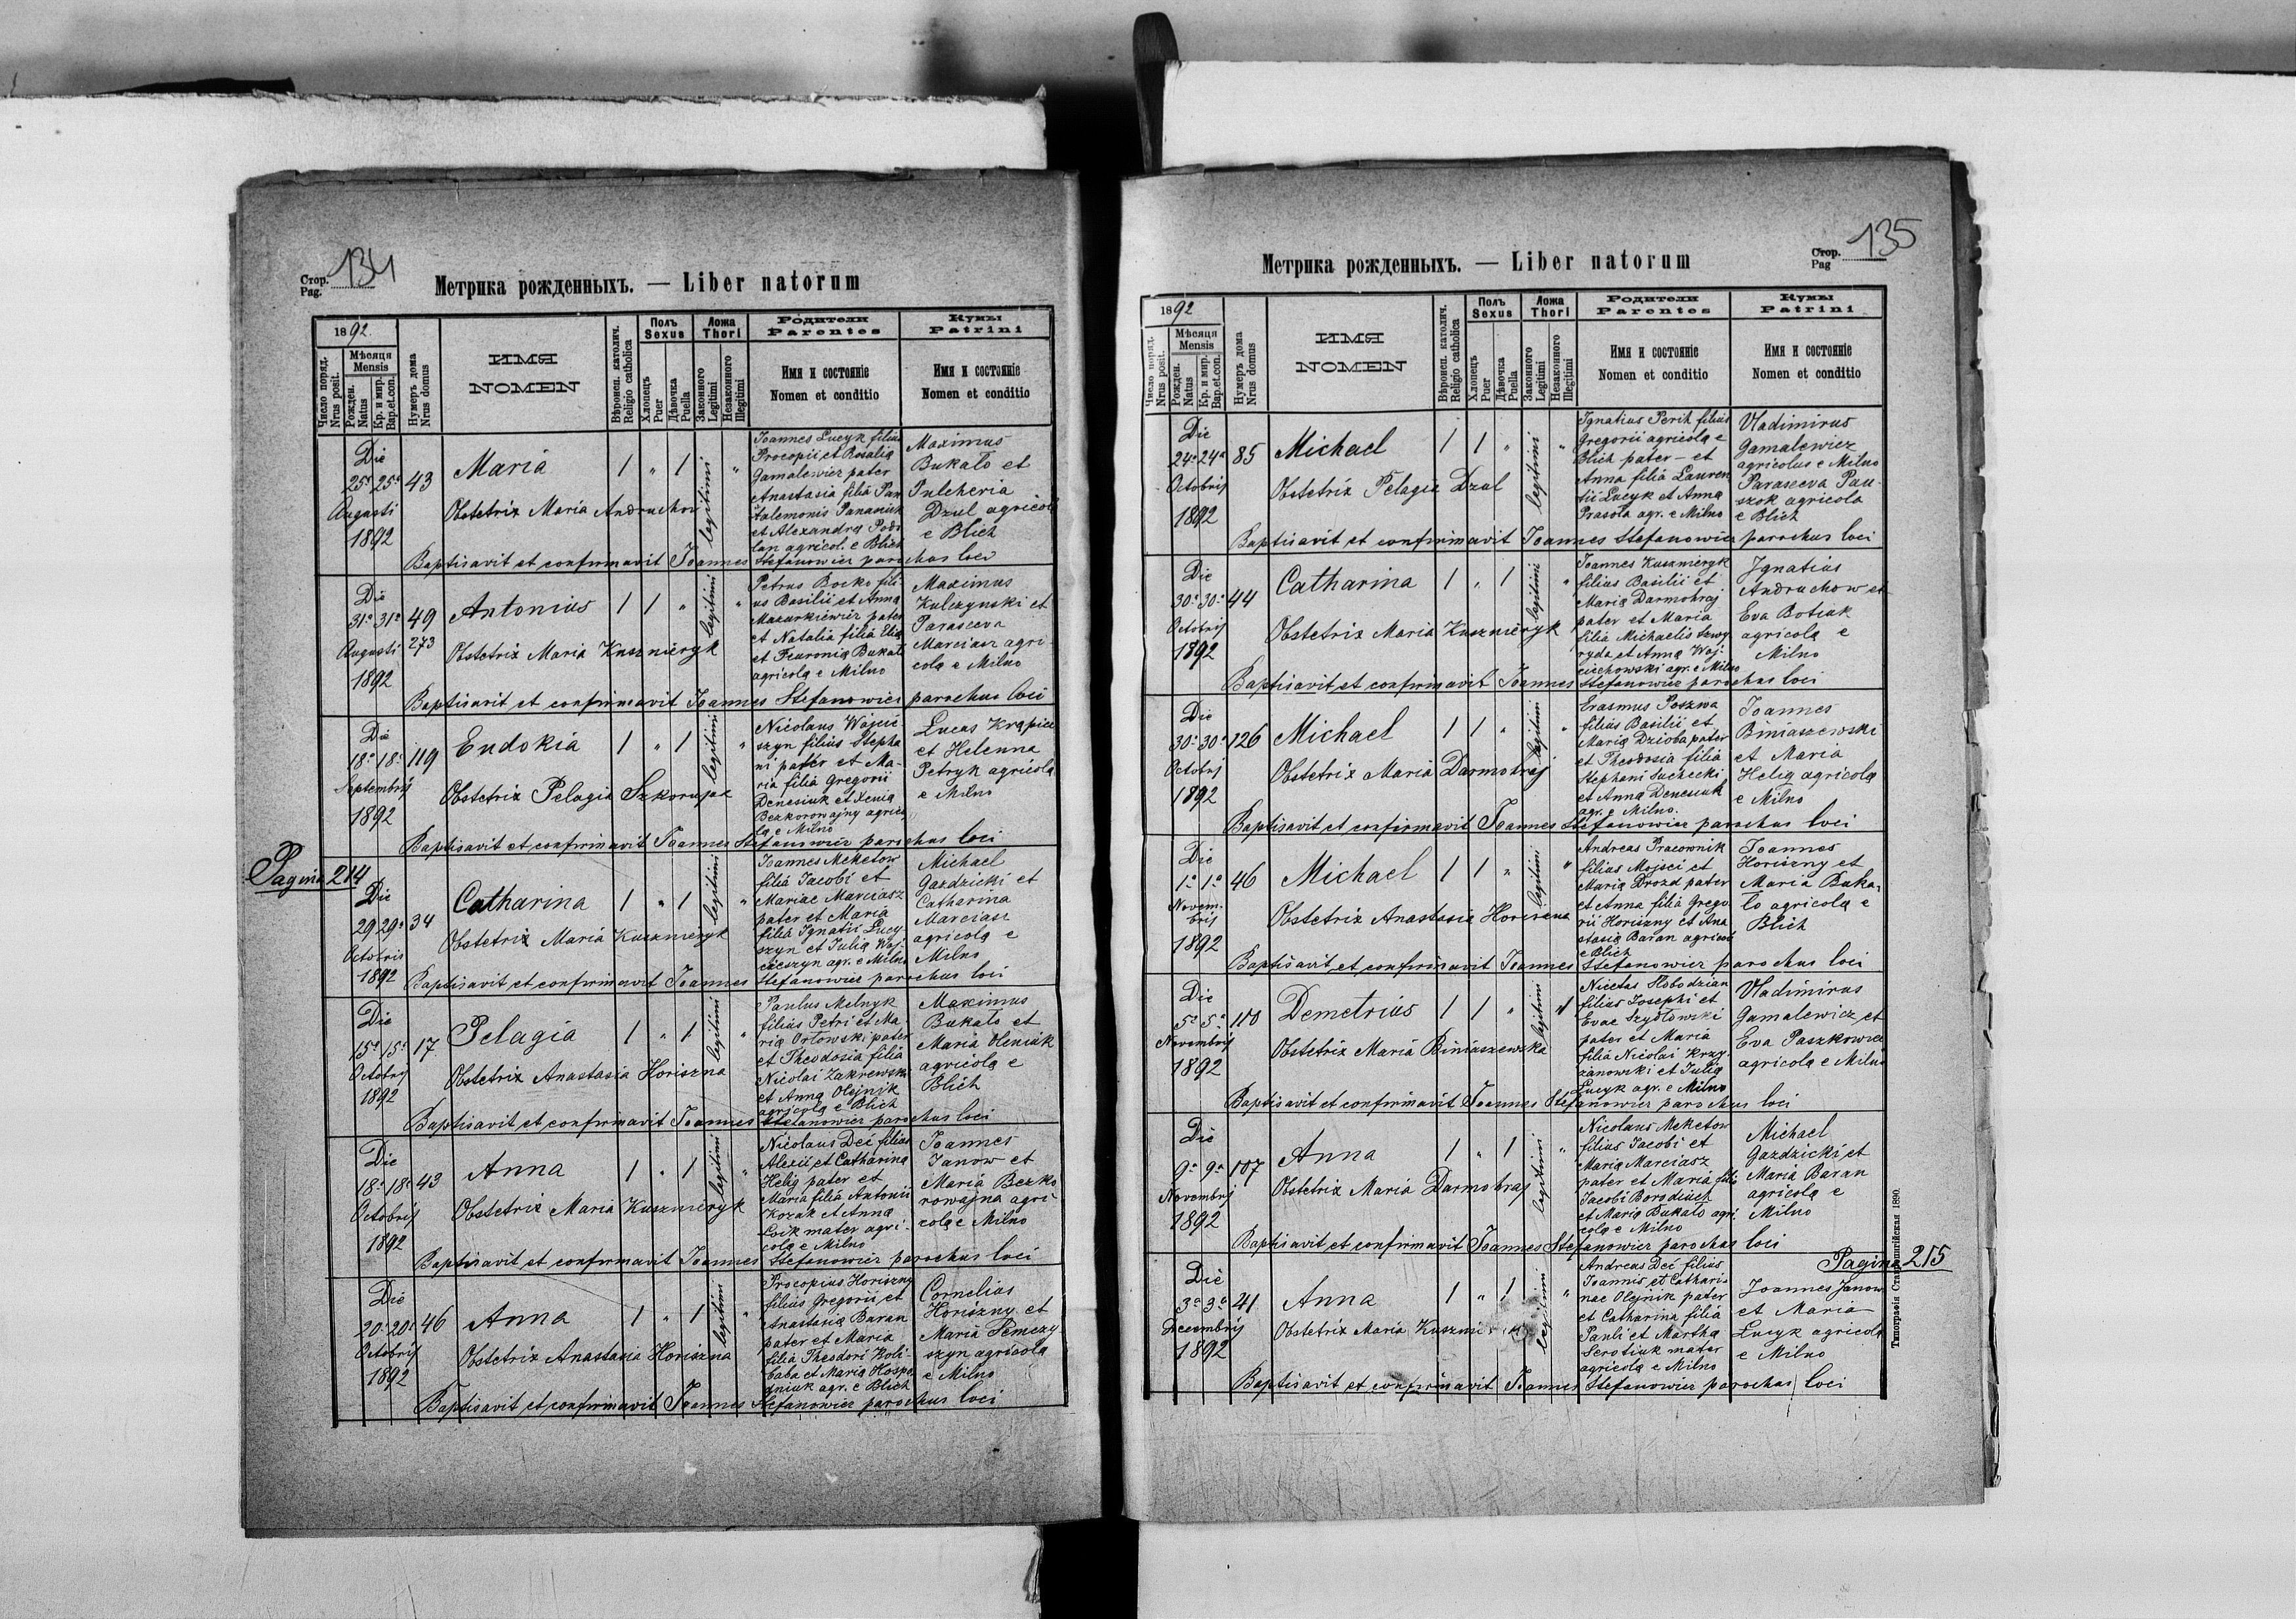 Стор. Pag. 134
Метрика рожденныхъ. — Liber natorum
1892
Число поряд. Nrus posit.
Мѣсяця Mensis
Рожден. Natus
Кр. и мир. Bap. et con.
Нумеръ дома Nrus domus
ИМЯ
NOMEN
Вѣроисп. католич. Religio catholica
Полъ Sexus
Хлопецъ Puer
Дѣвочка Puella
Ложа Thori
Законного Legitimi
Незаконного Illegitimi
Родители Parentes
Имя и состоянiе
Nomen et conditio
Кумы Patrini
Имя и состоянiе
Nomen et conditio
Die
25a 25a
Augusti
1892
43
Maria
1 " 1 legitimi "
Obstetrix Maria Andruchow
Joannes Lucyk filius
Procopii et Rosalia
Gamalewicz pater
Anastasia filia Pan
talemonis Panasiuk
et Alexandra Podo
lan agricol. e Blich
Maximus
Bukało et
Pulcheria
Dzul agricol
e Blich
Baptisavit et confirmavit Joannes Stefanowicz parochus loci
Die
31a 31a
Augusti
1892
49
273
Antonius
1 1 " legitimi "
Obstetrix Maria Kuszneryk
Petrus Bocko fili-
us Basilii et Anna
Mazurkiewicz pater
et Natalia filia Elia
et Feuronia Bukało
agricola e Milno
Maximus
Kulczynski et
Parasceva
Marciasz agri-
cola e Milno
Baptisavit et confirmavit Joannes Stefanowicz parochus loci
Die
18a 18a
Septembris
1892
119
Eudokia
1 " 1 legitimi "
Obstetrix Pelagia
Nicolaus Wojcie
szyn filius Stepha
ni pater et Ma-
ria filia Gregorii
Denesiuk et Xenia
Bezkorowajny agrico
la e Milno
Lucas Krąpiec
et Helenna
Petryk agricola
e Milno
Baptisavit et confirmavit Joannes Stefanowicz parochus loci
Pagina 214
Die
29 29a
Octobris
1892
34
Catharina
1 " 1 legitimi "
Obstetrix Maria Kuszmeryk
Joannes Meketow
filia Jacobi et
Mariae Marciasz
pater et Maria
filia Ignatii Lucy
szyn et Julia Woj-
cieszyn agr. e Milno
Michael
Gazdzicki et
Catharina
Marciasz
agricola e
Milno
Baptisavit et confirmavit Joannes Stefanowicz parochus loci
Die
15a 15a
Octobris
1892
17
Pelagia
1 " 1 legitimi "
Obstetrix Anastasia Horiszna
Paulus Melnyk
filius Petri et Ma
ria Orłowski pater
et Theodosia filia
Nicolai Zakrewski
et Anna Olejnik
agricola e Blich
Maximus
Bukało et
Maria Oleniak
agricola e
Blich
Baptisavit et confirmavit Joannes Stefanowicz parochus loci
Die
18a 18a
Octobris
1892
43
Anna
1 " 1 legitimi "
Obstetrix Maria Kuszmeryk
Nicolaus Dec filius
Alexii et Catharina
Helig pater et
Maria filia Antonii
Kozak et Anna
Łoik mater agri-
cola e Milno
Joannes
Janow et
Maria Bezko
rowajna agri
cola e Milno
Baptisavit et confirmavit Joannes Stefanowicz parochus loci
Die
20a 20a
Octobris
1892
46
Anna
1 " 1 legitimi "
Obstetrix Anastasia Horiszna
Procopius Horiszny
filius Gregorii et
Anastasia Baran
pater et Maria
filia Theodori Koli-
baba et Maria Hospo
dniuk agr. e Blich
Cornelius
Horiszny et
Maria Pemczy
szyn agricola
e Milno
Baptisavit et confirmavit Joannes Stefanowicz parochus loci
Стор. Pag 135
Метрика рожденныхъ. — Liber natorum
1892
Число поряд. Nrus posit.
Мѣсяця Mensis
Рожден. Natus
Кр. и мир. Bap. et. con.
Нумеръ дома Nrus domus
ИМЯ
NOMEN
Вѣроисп. католич. Religio catholica
Полъ Sexus
Хлопецъ Puer
Дѣвочка Puella
Ложа Thori
Законного Legitimi
Незаконного Illegitimi
Родители Parentes
Имя и состоянiе
Nomen et conditio
Кумы Patrini
Имя и состоянiе
Nomen et conditio
Die
24a 24a
Octobris
1892
85
Michael
1 1 " legitimi "
Obstetrix Pelagia Dzul
Ignatius Perih filius
Gregorii agricola e
Blich pater - et
Anna filia Lauren
tii Lucyk et Anna
Prasola agr. e Milno
Vladimirus
Gamalewicz
agricolus e Milno
Parasceva Pau-
szok agricola
e Blich
Baptisavit et confirmavit Joannes Stefanowicz parochus loci
Die
30a 30a
Octobris
1892
44
Catharina
1 " 1 legitimi "
Obstetrix Maria Kuszmeryk
Joannes Kuszmeryk
filius Basilii et
Maria Darmohraj
pater et Maria
filia Michaelis Szwy
ryda et Anna Woj-
ciechowski agr. e Milno
Ignatius
Andruchow et
Eva Botiuk
agricola e
Milno
Baptisavit et confirmavit Joannes Stefanowicz parochus loci
Die
30a 30a
Octobris
1892
126
Michael
1 1 " legitimi "
Obstetrix Maria Darmohraj
Erasmus Poszwa
filius Basilii et
Maria Dzioba pater
et Theodosia filia
Stephani Suchecki
et Anna Denesiuk
agr. e Milno.
Joannes
Biniaszewski
et Maria
Helig agricola
e Milno
Baptisavit et confirmavit Joannes Stefanowicz parochus loci
Die
1a 1a
Novem-
bris
1892
46
Michael
1 1 " legitimi "
Obstetrix Anastasia Horiszna
Andreas Pracownik
filius Mojsei et
Maria Drozd pater
et Anna filia Grego
rii Horiszny et Ana
stasia Baran agricola
e Blich
Joannes
Horiszny et
Maria Buka-
ło agricola e
Blich
Baptisavit et confirmavit Joannes Stefanowicz parochus loci
Die
5a 5a
Novembris
1892
110
Demetrius
1 1 " legitimi "
Obstetrix Maria Biniaszewska
Nicetas Hobodzian
filius Josephi et
Evae Szydłowski
pater et Maria
filia Nicolai Krzy-
zanowski et Julia
Lucyk agr. e Milno
Vladimirus
Gamalewicz et
Eva Paszkowicz
agricola e Milno
Baptisavit et confirmavit Joannes Stefanowicz parochus loci
Die
9a 9a
Novembris
1892
107
Anna
1 " 1 legitimi "
Obstetrix Maria Darmohraj
Nicolaus Meketow
filius Jacobi et
Maria Marciasz
pater et Maria filia
Jacobi Borodiuch
et Maria Bukało agri
cola e Milno
Michael
Gazdzicki et
Maria Baran
agricola e
Milno
Baptisavit et confirmavit Joannes Stefanowicz parochus loci
Pagina 215
Die
3a 3a
Decembris
1892
41
Anna
1 " 1 legitimi "
Obstetrix Maria
Andreas Dec filius
Joannis et Cathari-
nae Olejnik pater
et Catharina filia
Pauli et Martha
Serotiuk mater
agricola e Milno
Joannes Janow
et Maria
Lucyk agricola
e Milno
Baptisavit et confirmavit Joannes Stefanowicz parochus loci
Типографiя Ставропигiйская 1890.